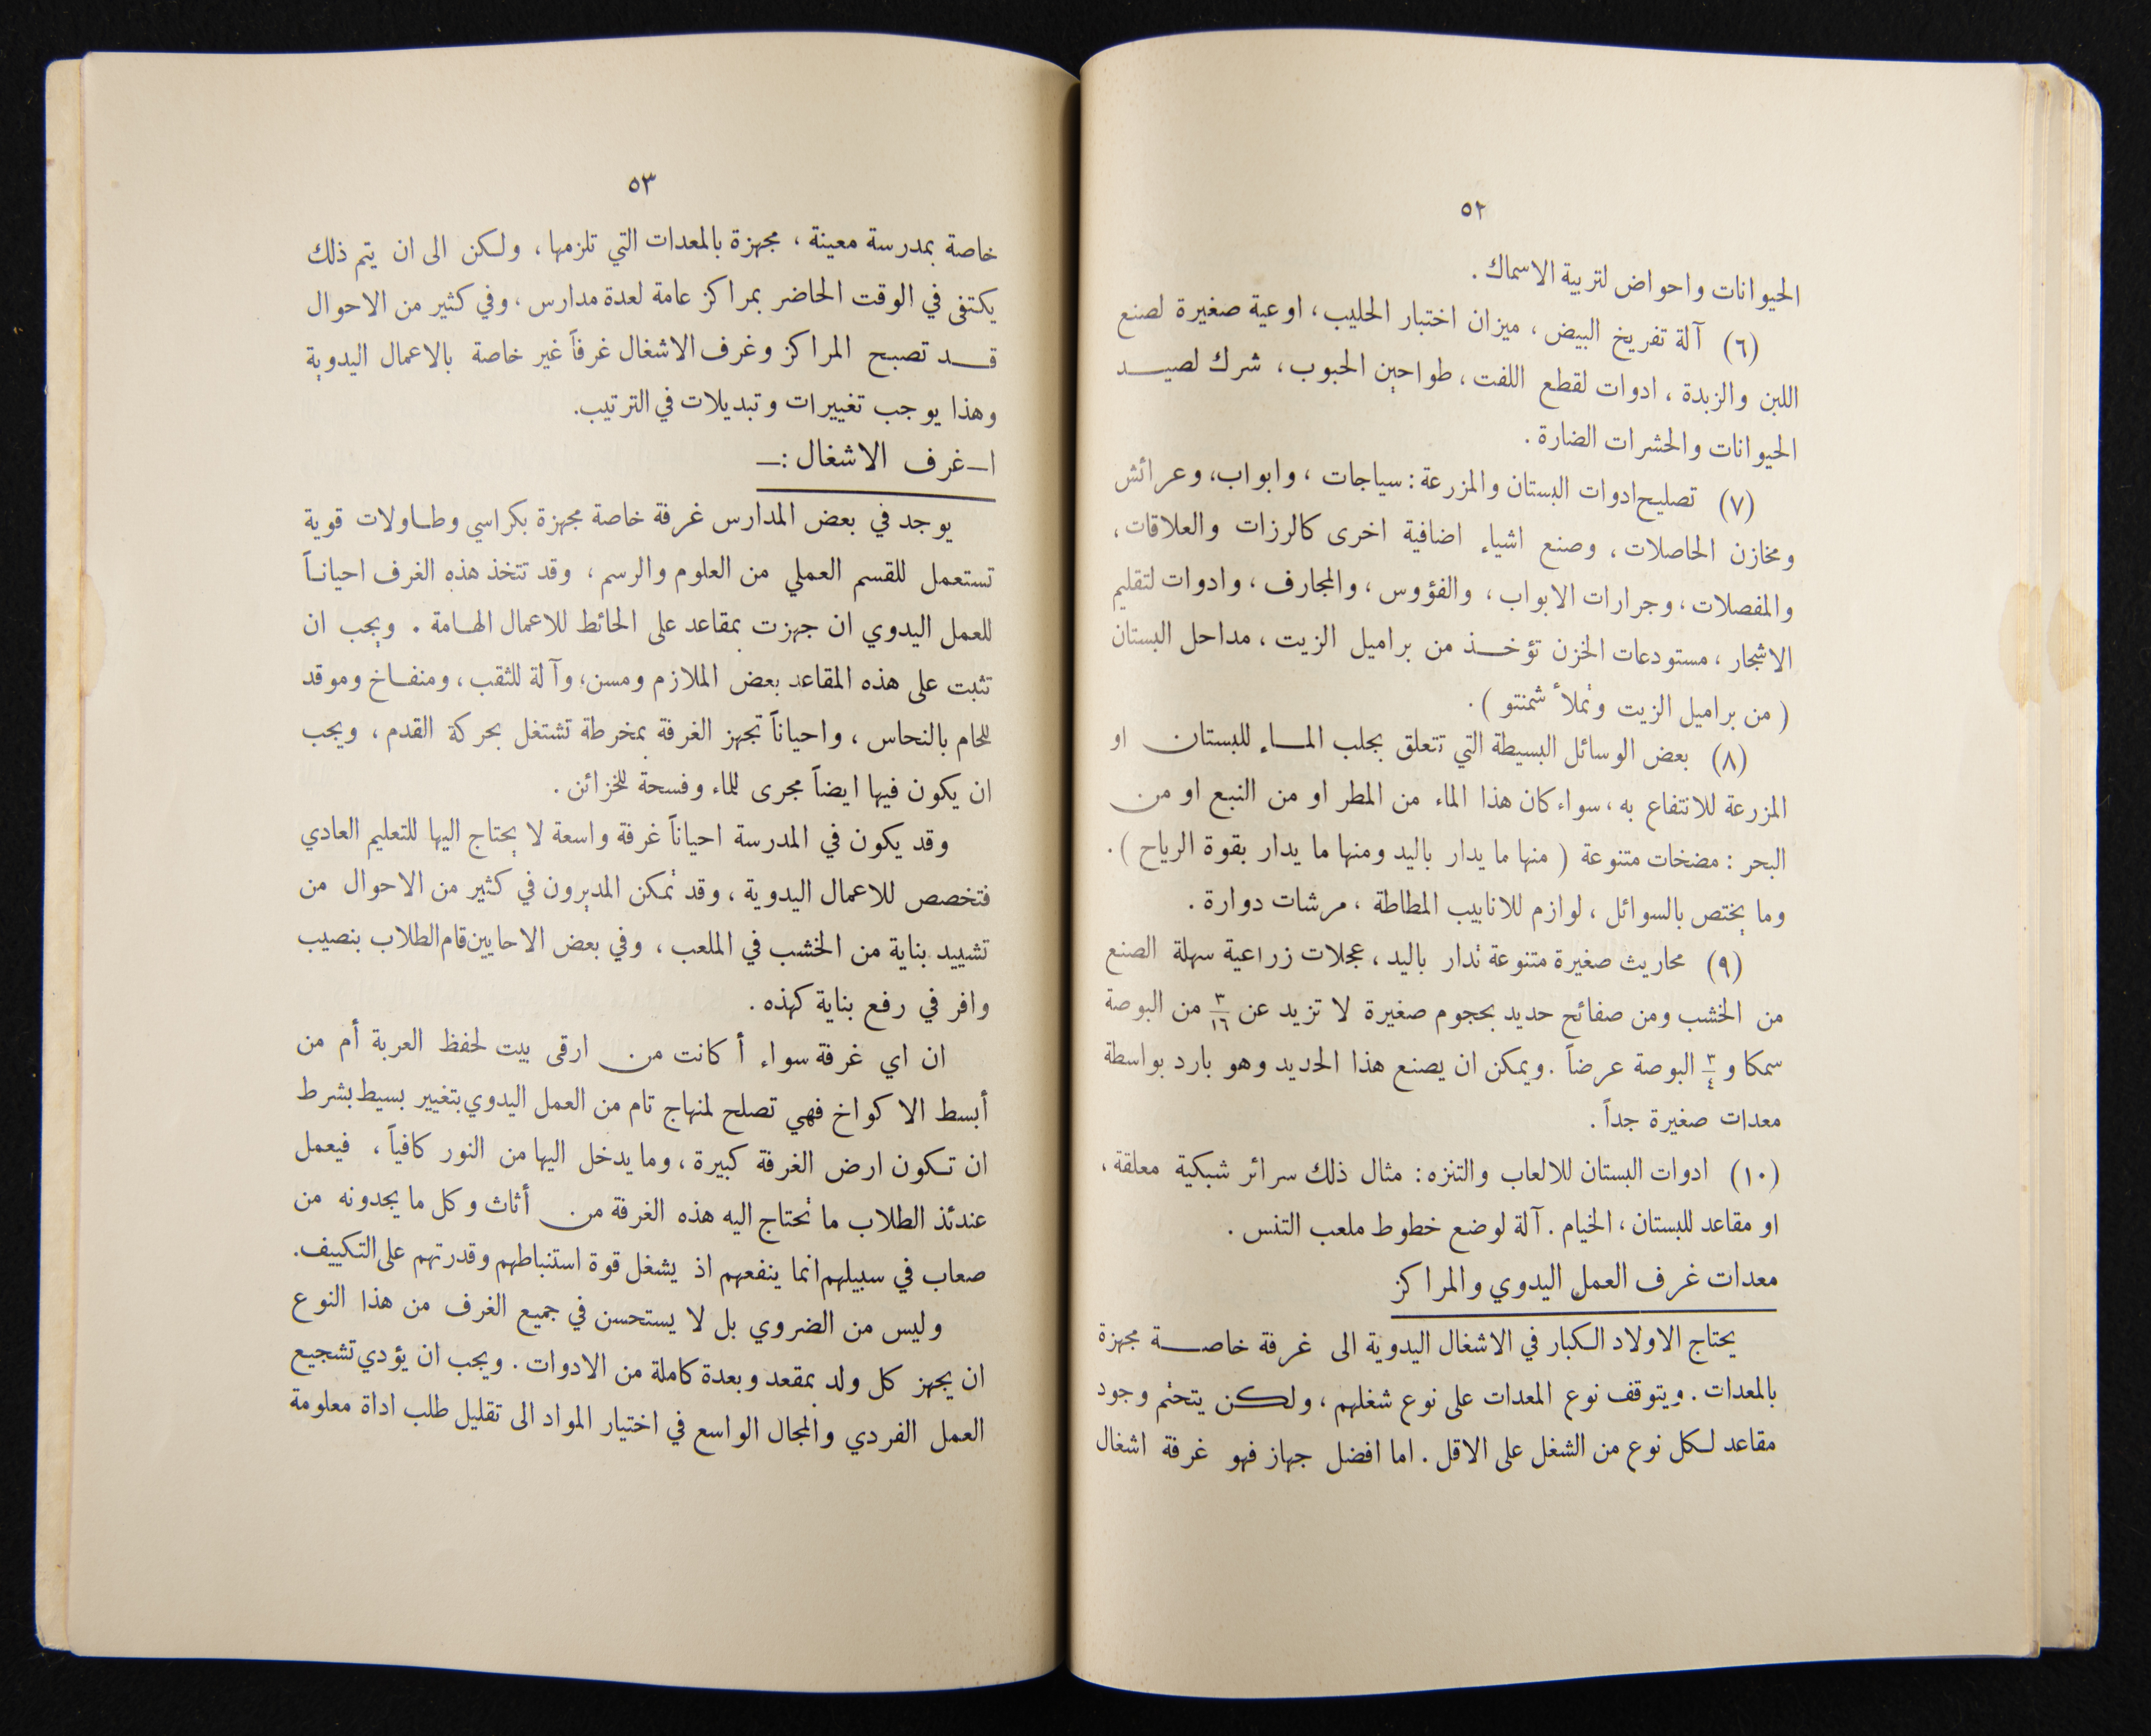 ٥٢
الحيوانات واحواض لتربية الاسماك .
(٦) آلة تفريخ البيض ، ميزان اختبار الحليب ، اوعية صغيرة لصنع
اللبن والزبدة ، ادوات لقطع اللفت ، طواحين الحبوب ، شرك لصيد
الحيوانات والحشرات الضارة .
(٧) تصليح ادوات البستان والمزرعة : سياجات ، وابواب ، وعرائش
ومخازن الحاصلات ، وصنع اشياء اضافية اخرى كالرزات والعلاقات ،
والمفصلات ، وجرارات الابواب ، والفؤوس ، والمجارف ، وادوات لتقليم
الاشجار ، مستودعات الخزن تؤخذ من براميل الزيت ، مداحل البستان
( من براميل الزيت وتملأ شمنتو ) .
(٨) بعض الوسائل البسيطة التي تتعلق بجلب الماء للبستان او
المزرعة للانتفاع به ، سواء كان هذا الماء من المطر او من النبع او من
البحر : مضخات متنوعة ( منها ما يدار باليد ومنها ما يدار بقوة الرياح ) .
وما يختص بالسوائل ، لوازم للانابيب المطاطة ، مرشات دوارة .
(٩) محاريث صغيرة متنوعة تدار باليد ، عجلات زراعية سهلة الصنع
من الخشب ومن صفائح حديد بحجوم صغيرة لا تزيد عن ٣/١٦ من البوصة
سمكا و ٣/٤ البوصة عرضاً . ويمكن ان يصنع هذا الحديد وهو بارد بواسطة
معدات صغيرة جداً .
(١٠) ادوات البستان للالعاب والتنزه : مثال ذلك سرائر شبكية معلقة ،
او مقاعد للبستان ، الخيام . آلة لوضع خطوط ملعب التنس .
معدات غرف العمل اليدوي والمراكز
يحتاج الاولاد الكبار في الاشغال اليدوية الى غرفة خاصة مجهزة
بالمعدات . ويتوقف نوع المعدات على نوع شغلهم ، ولكن يتحتم وجود
مقاعد لكل نوع من الشغل على الاقل . اما افضل جهاز فهو غرفة اشغال
٥٣
خاصة بمدرسة معينة ، مجهزة بالمعدات التي تلزمها ، ولكن الى ان يتم ذلك
يكتفى في الوقت الحاضر بمراكز عامة لعدة مدارس ، وفي كثير من الاحوال
قد تصبح المراكز وغرف الاشغال غرفاً غير خاصة بالاعمال اليدوية
وهذا يوجب تغييرات وتبديلات في الترتيب.
ا-غرف الاشغال :-
يوجد في بعض المدارس غرفة خاصة مجهزة بكراسي وطاولات قوية
تستعمل للقسم العملي من العلوم والرسم ، وقد تتخذ هذه الغرف احياناً
للعمل اليدوي ان جهزت بمقاعد على الحائط للاعمال الهامة . ويجب ان
تثبت على هذه المقاعد بعض الملازم ومسن، وآلة للثقب ، ومنفاخ وموقد
للحام بالنحاس ، واحياناً تجهز الغرفة بمخرطة تشتغل بحركة القدم ، ويجب
ان يكون فيها ايضاً مجرى للماء وفسحة للخزائن .
وقد يكون في المدرسة احياناً غرفة واسعة لا يحتاج اليها للتعليم العادي
فتخصص للاعمال اليدوية ، وقد تمكن المديرون في كثير من الاحوال من
تشييد بناية من الخشب في الملعب ، وفي بعض الاحايين قام الطلاب بنصيب
وافر في رفع بناية كهذه .
ان اي غرفة سواء أ كانت من ارقى بيت لحفظ العربة أم من
أبسط الاكواخ فهي تصلح لمنهاج تام من العمل اليدوي بتغيير بسيط بشرط
ان تكون ارض الغرفة كبيرة ، وما يدخل اليها من النور كافياً ، فيعمل
عندئذ الطلاب ما تحتاج اليه هذه الغرفة من أثاث وكل ما يجدونه من
صعاب في سبيلهم انما ينفعهم اذ يشغل قوة استنباطهم وقدرتهم على التكييف.
وليس من الضروي بل لا يستحسن في جميع الغرف من هذا النوع
ان يجهز كل ولد بمقعد وبعدة كاملة من الادوات . ويجب ان يؤدي تشجيع
العمل الفردي والمجال الواسع في اختيار المواد الى تقليل طلب اداة معلومة